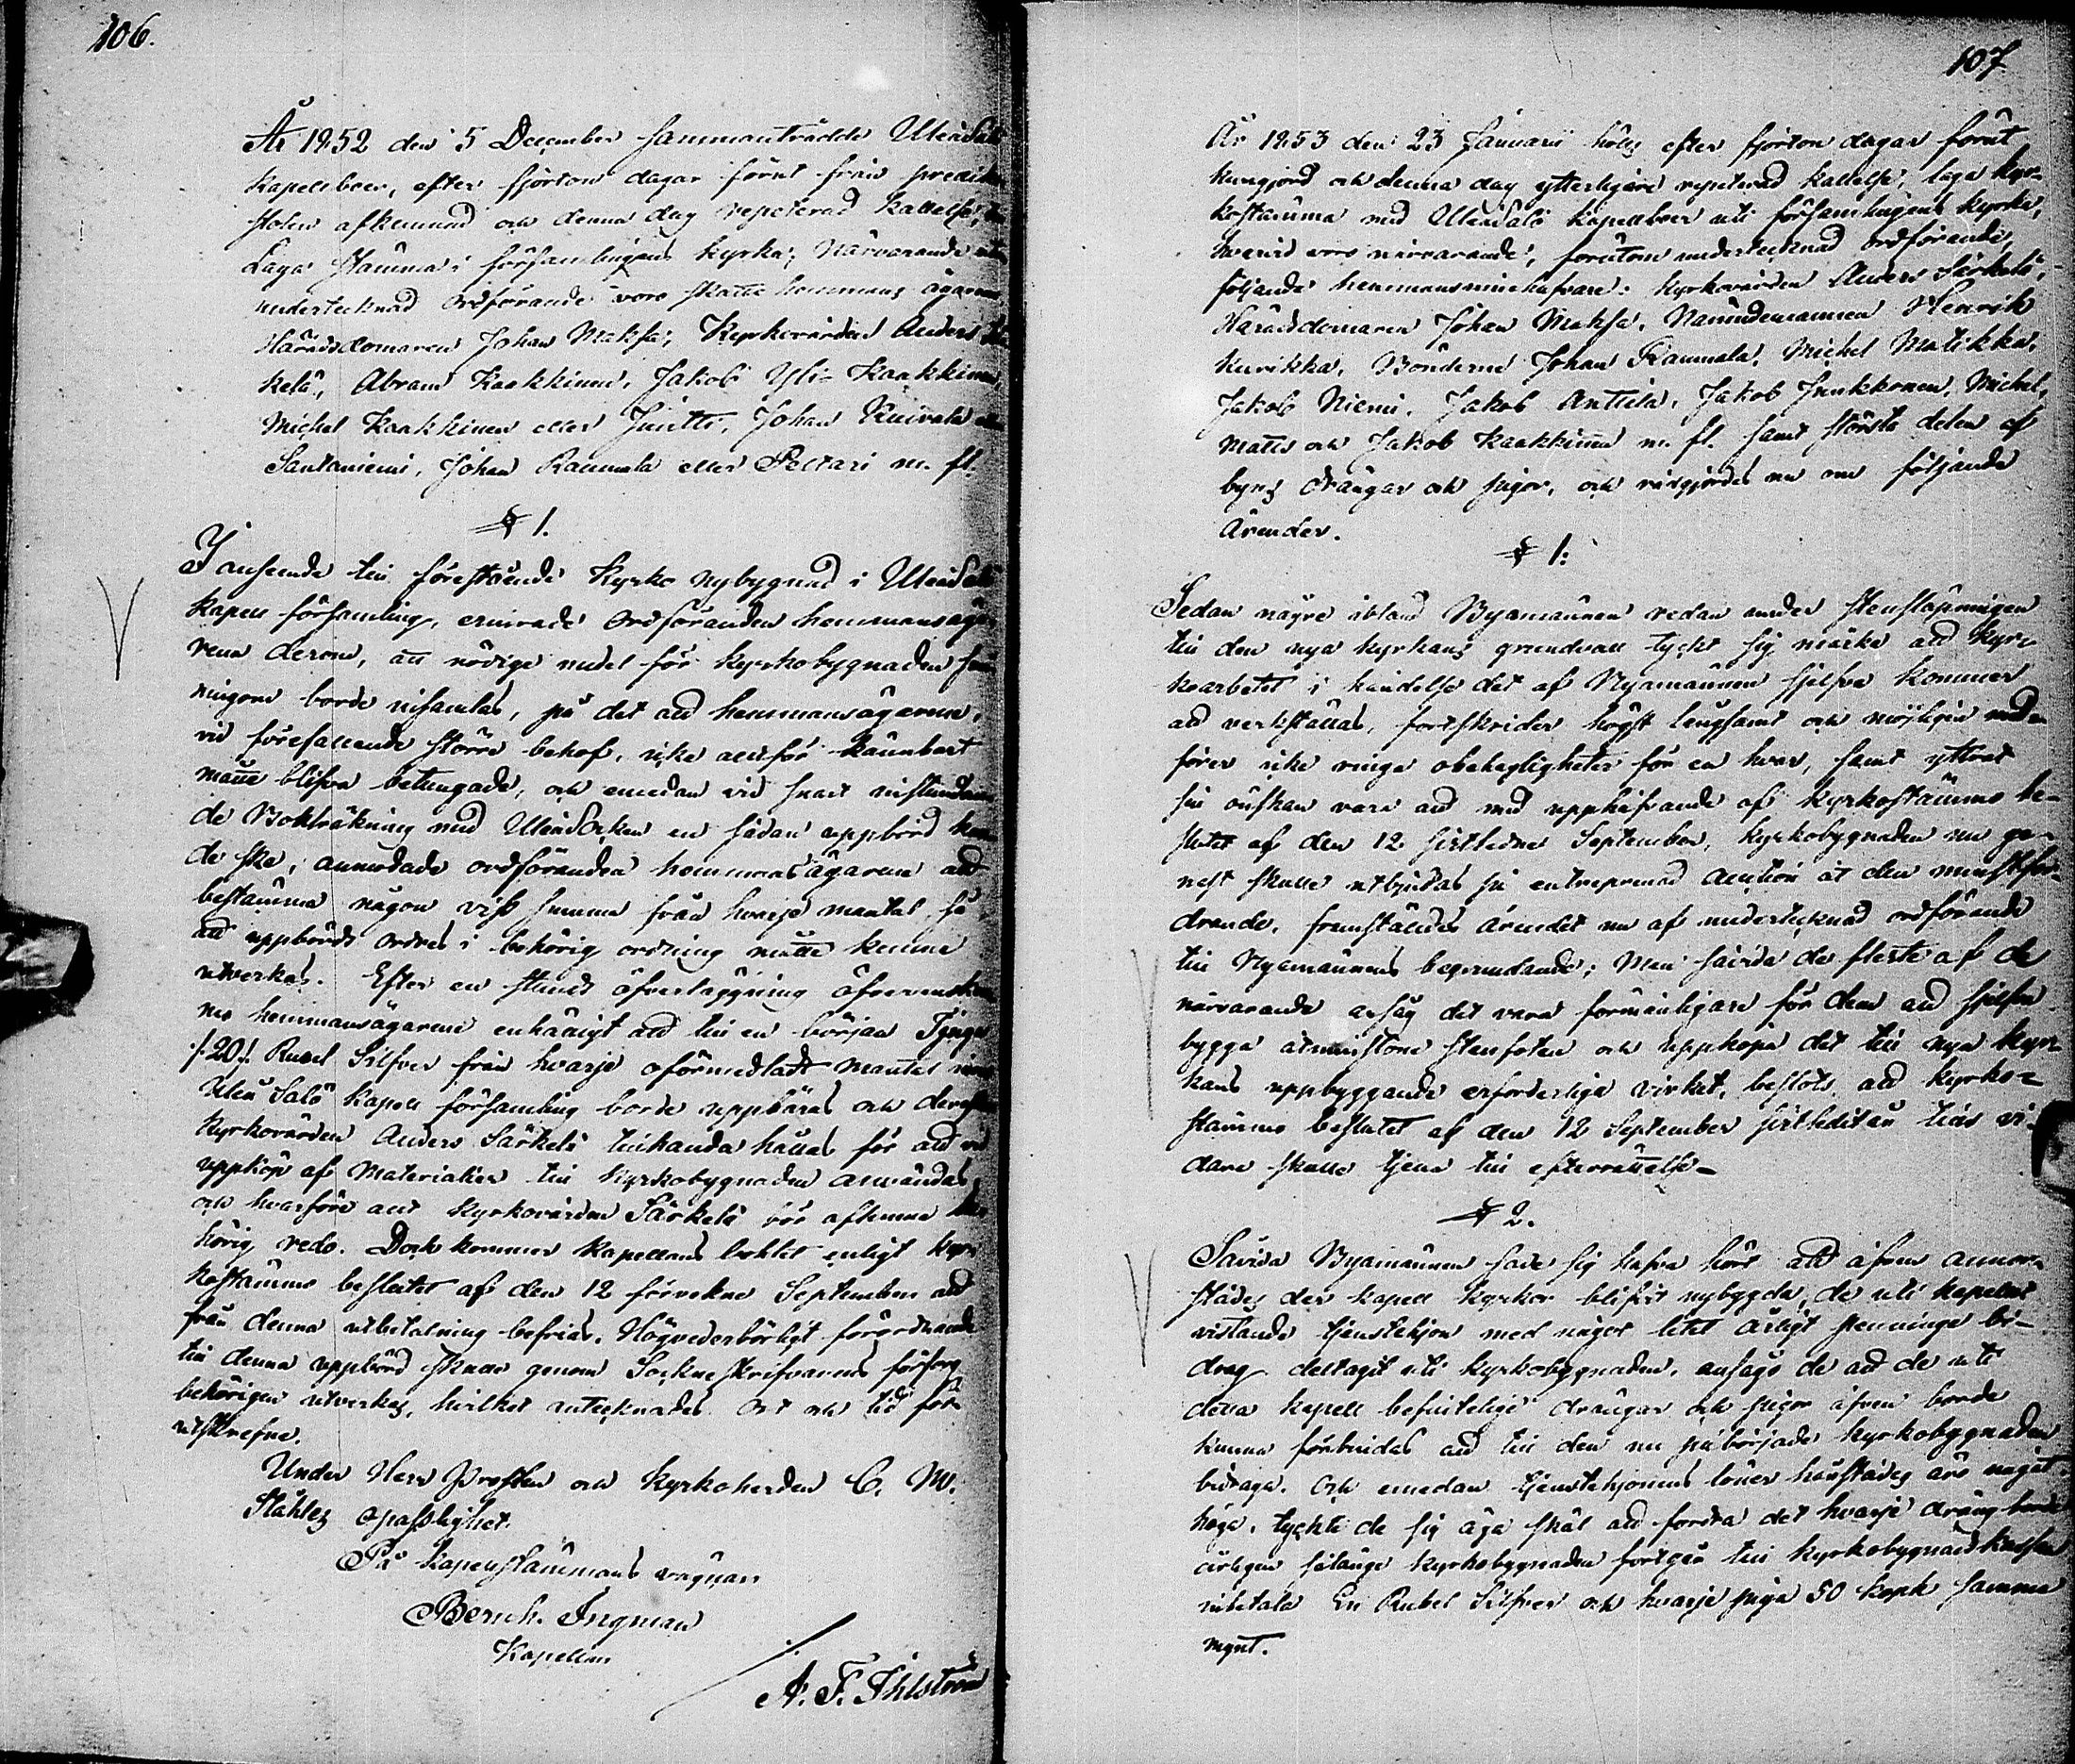 106.
År 1852 den 5 December sammanträdde Uleåsalo
kapellboer, efter fjorton dagar förut från predik
stolen afkunnad och denna dag repeterad kallelse, 
Laga stämma i församlingens kyrka; Närvarande utom
undertecknad Ordförande voro skatte hemmans ägarene
Häradsdomaren Johan Maksa; Kyrkovärden Anders Sär
kelä, Abram Kaakkinen, Jakob Yli-Kaakkinen,
Michel Kaakkinen eller Juntti, Johan Kuivala eller
Santaniemi, Johan Raumala eller Peltari m. fl.
§ 1.
I anseende till förestående Kyrko nybygnad i Uleåsalo
kapell församling, erinrade Ordföranden hemmansäga
rena derom, att nödige medel för kyrkobygnaden 
ningom borde insamlas, på det att hemmansägarene,
vid förefallande större behof, icke allt för kännbart
måtte blifva betungade, och emedan vid snart instundan
de Bokräkning med Uleå Socken en sådan uppbörd kun
de ske, anmodade ordföranden hemmansägarene att
bestämma någon viss summa från hvarje mantal, så
att uppbörds ordres i behörig ordning måtte kunna
utverkas. Efter en stunds öfverläggning öfverenskom
mo hemmansägarene enhälligt att till en början Tjugu
/:20:/ Rubel Silfver från hvarje oförmedladt mantal inom
Uleå Salo Kapell församling borde uppbäras och derefter
Kyrkovärden Anders Särkelä tillhanda hållas för att vid
uppköp af Materialier till Kyrkobygnaden användas,
och hvarföre ock Kyrkovärden Särkelä bör aflemna be
hörig redo. Dock kommer Kapellans bohlet enligt Kyr
kostämmo beslutet af den 12 förvekne September att
från denna utbetalning befrias. Högvederbörligt förordnande
till denna uppbörd skulle genom Sockneskrifvarens försorg
behörigen utverkas, hvilket antecknades. Ort och tid för
utskrefne.
Under Herr Prosten och Kyrkoherden C. M.
Ståhles opasslighet.
På Kapellstämmans vägnar
Bernh. Ingman
Kapellan
A. F. Ihlström
107
År 1853 den 23 Januarii hölls efter fjorton dagar förut
kungjord och denna dag ytterligare repeterad kallelse, laga kyr-
kostämma med Uleåsalo kapellboer uti församlingens kyrka,
hvarvid voro närvarande, förutom undertecknad Ordförande,
följande hemmansinnehafvare: Kyrkovärden Anders Särkelä,
Häradsdomaren Johan Maksa, Nämndemannen Henrik
Kurikka, Bönderne Johan Raumala, Michel Matikka,
Jakob Niemi, Jakob Anttila, Jakob Junkkonen, Michel,
Matts och Jakob Kaakkinen m. fl. samt största delen af
byns drängar och pigor, och rådgjordes nu om följande
Ärender.
§ 1:
Sedan någre ibland Byamännen redan under stensläpningen
till den nya kyrkans grundvall tyckt sig märka att kyr-
koarbetet i händelse det af Byamännen sjelfva kommer
att verkställas, fortskrider högst långsamt och möjligen med-
förer icke ringa obehagligheter för en hvar, samt yttrat
sin önskan vara att med upphäfvande af kyrkostämmo be-
slutet af den 12 sistledne September, kyrkobygnaden nu ge-
nast skulle utbjudas på entreprenad auction åt den minstfor-
drande, framställdes ärendet nu af undertecknad ordförande
till Byamännens begrundande; Men såvida de fleste af de
närvarande ansåg det vara förmånligare för dem att sjelfva
bygga åtminstone stenfoten och uppköpa det till nya kyr-
kans uppbyggande erforderliga virket, beslöts att kyrko-
stämmo beslutet af den 12 September sistledit än tills vi-
dare skulle tjena till efterrättelse-
§ 2.
Såvida Byamännen sade sig hafva hört att äfven annor-
städes der kapell kyrkor blifvit nybyggda, de uti kapellet
vistande tjenstehjon med något litet årligt penninge bi-
drag deltagit uti kyrkobygnaden, ansågo de att de uti
detta kapell befintelige drängar och pigor äfven borde
kunna förbindas att till den nu påbörjade kyrkobygnaden
bidraga. Och emedan tjenstehjonens löner härstädes äro något
höga, tyckte de sig äga skäl att fordra det hvarje dräng borde
årligen sålänge kyrkobygnaden fortgår till Kyrkobygnads kassan
inbetala En Rubel Silfver och hvarje piga 50 kopk samma
mynt.